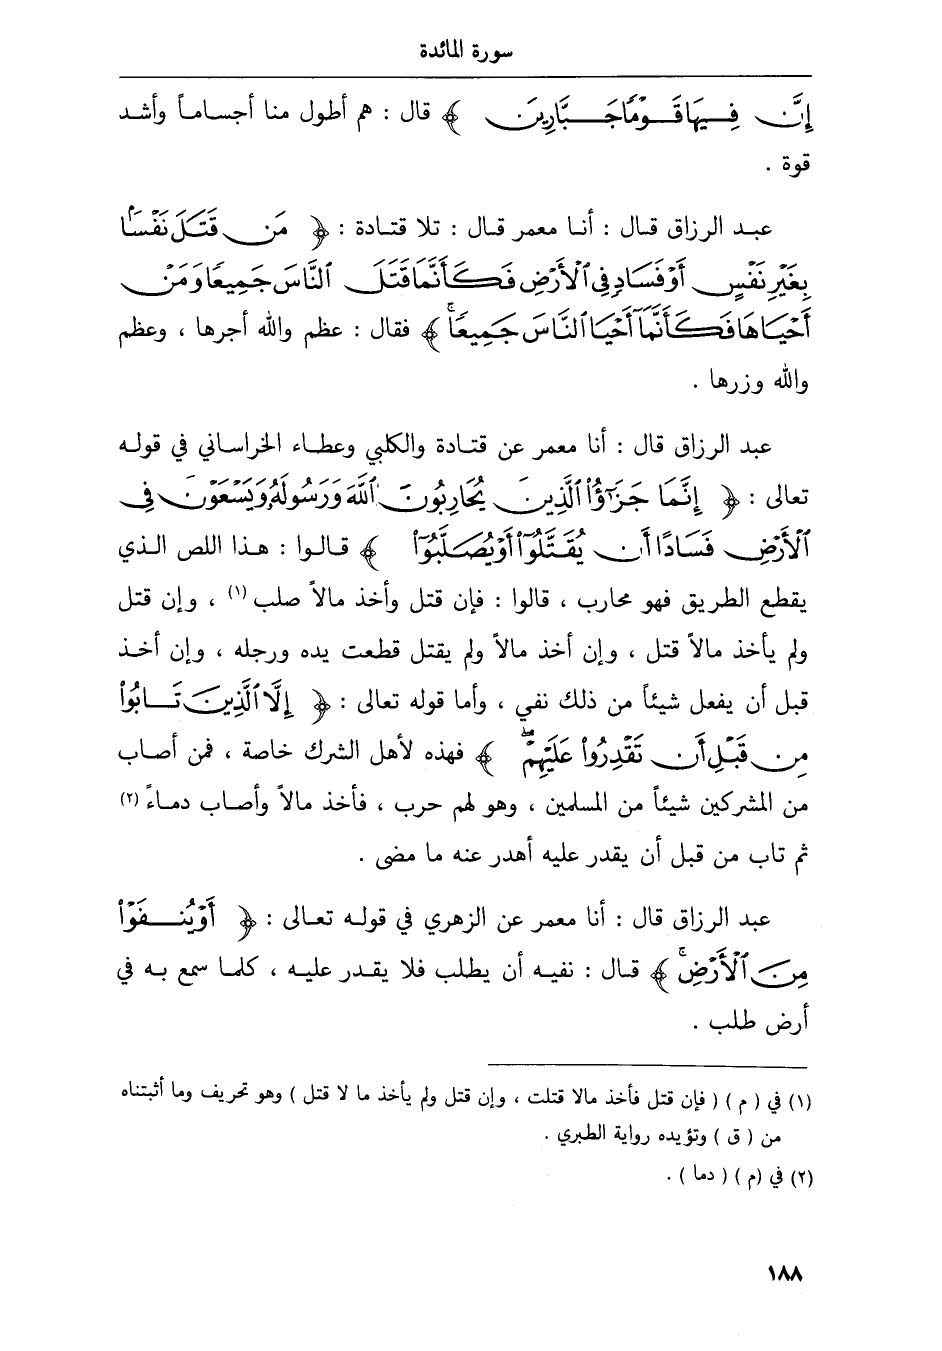 سورة المائدة
إِنَّ فِيهَا قَوْمًا جَبَّارِينَ ﴾ قال : هم أطول منا أجساماً وأشد
قوة .
عبد الرزاق قال : أنا معمر قال : تلا قتادة : ﴿ مَن قَتَلَ نَفْسًا
بِغَيْرِ نَفْسٍ أَوْ فَسَادٍ فِي ٱلْأَرْضِ فَكَأَنَّمَا قَتَلَ ٱلنَّاسَ جَمِيعًا وَمَنْ
أَحْيَاهَا فَكَأَنَّمَآ أَحْيَا ٱلنَّاسَ جَمِيعًاۚ ﴾ فقال : عظم والله أجرها ، وعظم
والله وزرها .
عبد الرزاق قال : أنا معمر عن قتادة والكلبي وعطاء الخراساني في قوله
تعالى : ﴿ إِنَّمَا جَزَٰٓؤُا۟ ٱلَّذِينَ يُحَارِبُونَ ٱللَّهَ وَرَسُولَهُۥ وَيَسْعَوْنَ فِي
ٱلْأَرْضِ فَسَادًا أَن يُقَتَّلُوٓا۟ أَوْ يُصَلَّبُوٓا۟ ﴾ قالوا : هذا اللص الذي
يقطع الطريق فهو محارب ، قالوا : فإن قتل وأخذ مالاً صلب (١) ، وإن قتل
ولم يأخذ مالاً قتل ، وإن أخذ مالاً ولم يقتل قطعت يده ورجله ، وإن أخذ
قبل أن يفعل شيئاً من ذلك نفي ، وأما قوله تعالى : ﴿ إِلَّا ٱلَّذِينَ تَابُوا۟
مِن قَبْلِ أَن تَقْدِرُوا۟ عَلَيْهِمْۖ ﴾ فهذه لأهل الشرك خاصة ، فمن أصاب
من المشركين شيئاً من المسلمين ، وهو لهم حرب ، فأخذ مالاً وأصاب دماءً (٢)
ثم تاب من قبل أن يقدر عليه أهدر عنه ما مضى .
عبد الرزاق قال : أنا معمر عن الزهري في قوله تعالى : ﴿ أَوْ يُنفَوْا۟
مِنَ ٱلْأَرْضِۚ ﴾ قال : نفيه أن يطلب فلا يقدر عليه ، كلما سمع به في
أرض طلب .
(١) في ( م ) ( فإن قتل فأخذ مالا قتلت ، وإن قتل ولم يأخذ ما لا قتل ) وهو تحريف وما أثبتناه
من ( ق ) وتؤيده رواية الطبري .
(٢) في (م ) ( دما ) .
١٨٨